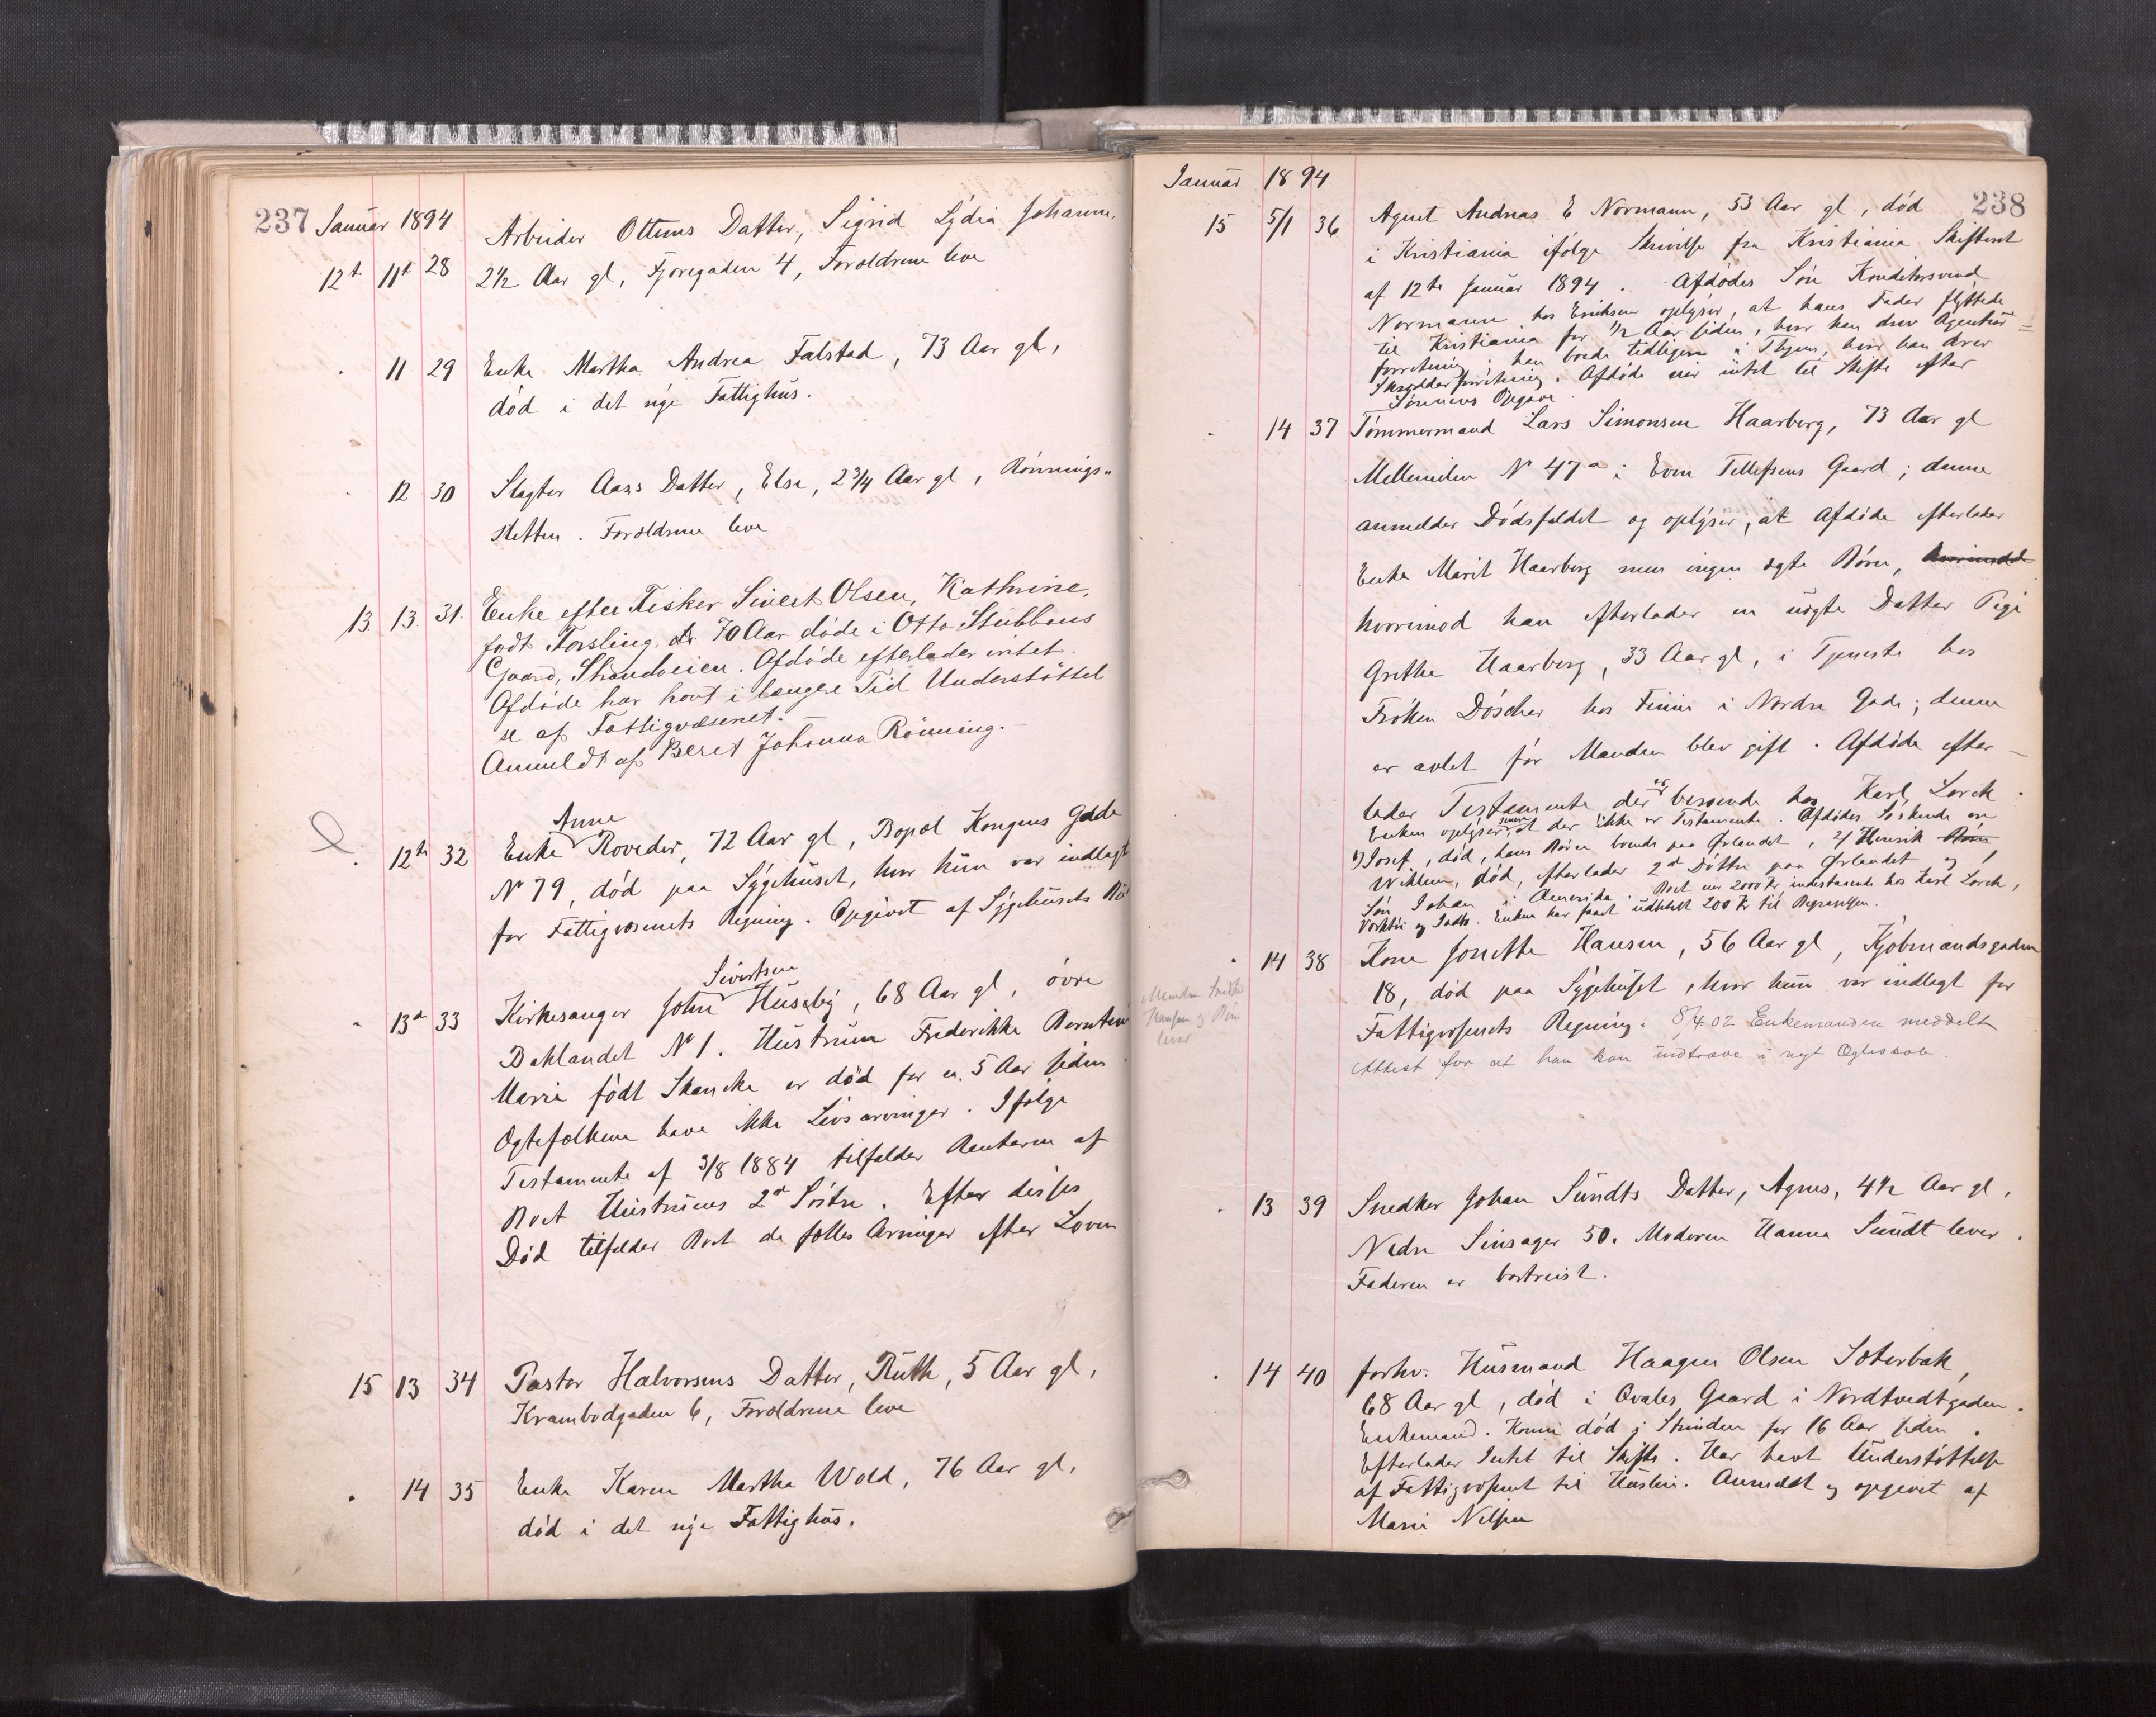 237 Januar 1894
12te 11te 28 Arbeider Ottems Datter, Sigrid Lydia Johanne,
2½ Aar gl, Fjoregaden 4, Forældrene leve
11 29 Enke Martha Andrea Falstad, 73 Aar gl,
død i det nye Fattighus.
12 30 Slagter Aass Datter, Else, 2¾ Aar gl, Rønnings-
sletten. Forældrene leve
13. 13. 31. Enke efter Fisker Sivert Olsen, Kathrine,
født Forsling, 70 Aar døde i Otto Stubbans
Gaard, Strandveien. Afdøde efterlader intet.
Afdøde har havt i længere Tid Understøttel
se af Fattigvæsenet.
Anmeldt af Beret Johanna Rønning.
Anne
12te 32 Enke Roveder, 72 Aar gl, Bopæl Kongens Gade
No 79, død paa Sygehuset, hvor hun var indlagt
for Fattigvæsenets Regning. Opgivet af Sygehusets
Sivertsen
13de 33 Kirkesanger John Huseby, 68 Aar gl, øvre
Baklandet No 1. Hustruen Frederikke Berntine
Marie født Skancke er død for ca. 5 Aar siden.
Ægtefolkene have ikke Livsarvinger. Ifølge
Testamente af 3/8 1884 tilfalder Renterne af
Boet Hustruens 2de Søstre. Efter disses
Død tilfalder Boet de fælles Arvinger efter Loven
15 13 34 Pastor Halvorsens Datter, Ruth, 5 Aar gl,
Krambodgaden 6, Forældrene leve
14 35 Enke Karen Martha Wold, 76 Aar gl,
død i det nye Fattighus.
Januar 1894
238
15 5/1 36 Agent Andreas E Normann, 53 Aar gl, død
i Kristiania ifølge Skrivelse fra Kristiania Skifteret
af 12te Januar 1894. Afdødes Søn Konditorsvend
Normann hos Erichsen oplyser, at hans Fader flyttede
til Kristiania for ½ Aar siden, hvor han drev Agentur-
forretning; han boede tidligere i Thjem, hvor han drev
Skrædderforretning. Afdøde eier intet til Skifte efter
Sønnens Opgave.
14 37 Tømmermand Lars Simonsen Haarberg, 73 Aar gl
Mellemilen No 47a i Even Tellefsens Gaard; denne
anmelder Dødsfaldet og oplyser, at Afdøde efterlader
Enke Marit Haarberg men ingen ægte Børn,
hvorimod han efterlader en uægte Datter Pige
Grethe Haarberg, 33 Aar gl, i Tjeneste hos
Frøken Døscher hos Finne i Nordre Gade; denne
er avlet før Manden blev gift. Afdøde efter-
lader Testamente der er beroende hos Karl Lorck.
Enken oplyser senere at der ikke er Testamente. Afdødes Søskende ere
1) Josef, død, hans Børn boende paa Ørlandet, 2) Henrik Børn,
Wilhlem, død, efterlader 2de Døttre paa Ørlandet og 1
Søn Johan i Amerika. Boet eier 2000 Kr indestaaende hos Karl Lorck,
Værktøi og Indbo. Enken har faaet udbetalt 200 Kr til Begravelsen.
14 38 Kone Jonette Hansen, 56 Aar gl, Kjøbmandsgaden
18, død paa Sygehuset, hvor hun var indlagt for
Fattigvæsenets Regning. 8/4 02 Enkemanden meddelt
Attest for at han kan indtræde i nyt Ægteskab.
Manden Snedker
Hansen og Børn
lever
13 39 Snedker Johan Sundts Datter, Agnes, 4½ Aar gl,
Nedre Sinsager 50. Moderen Hanna Sundt lever.
Faderen er bortreist.
14 40 forhv. Husmand Haagen Olsen Sæterbak,
68 Aar gl, død i Qvales Gaard i Nordtvedtgaden.
Enkemand. Konen død i Strinden for 16 Aar siden.
Efterlader Intet til Skifte. Har havt Understøttelse
af Fattigvæsenet til Husleie. Anmeldt og opgivet af
Marie Nilsen